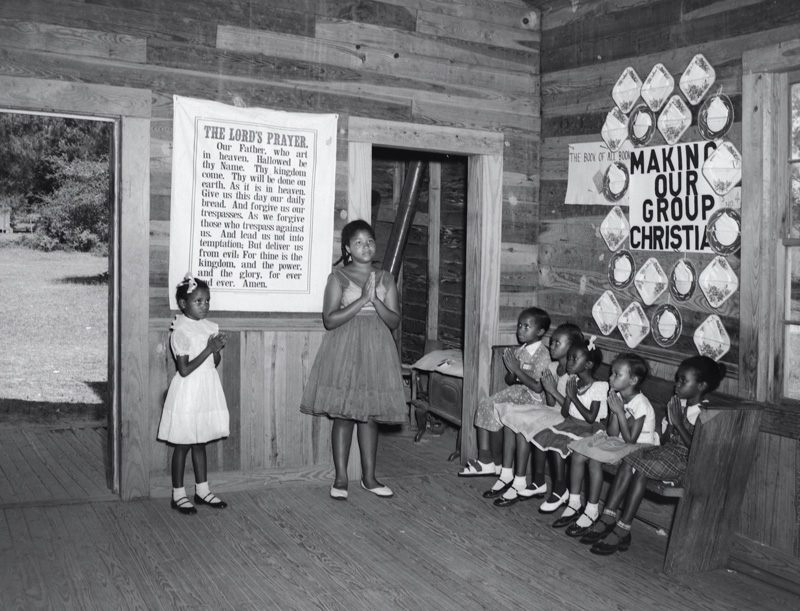 THE LORD'S PRAYER.
Our Father, who art
in heaven, Hallowed be
thy Name. Thy kingdom
come. Thy will be done on
earth, As it is in heaven.
Give us this day our daily
bread. And forgive us our
trespasses, As we forgive
those who trespass against
us. And lead us not into
temptation; But deliver us
from evil: For thine is the
kingdom, and the power,
and the glory, for ever
and ever. Amen.
THE BOOK OF ALL BOOK
MAKING
OUR
GROUP
CHRISTIA